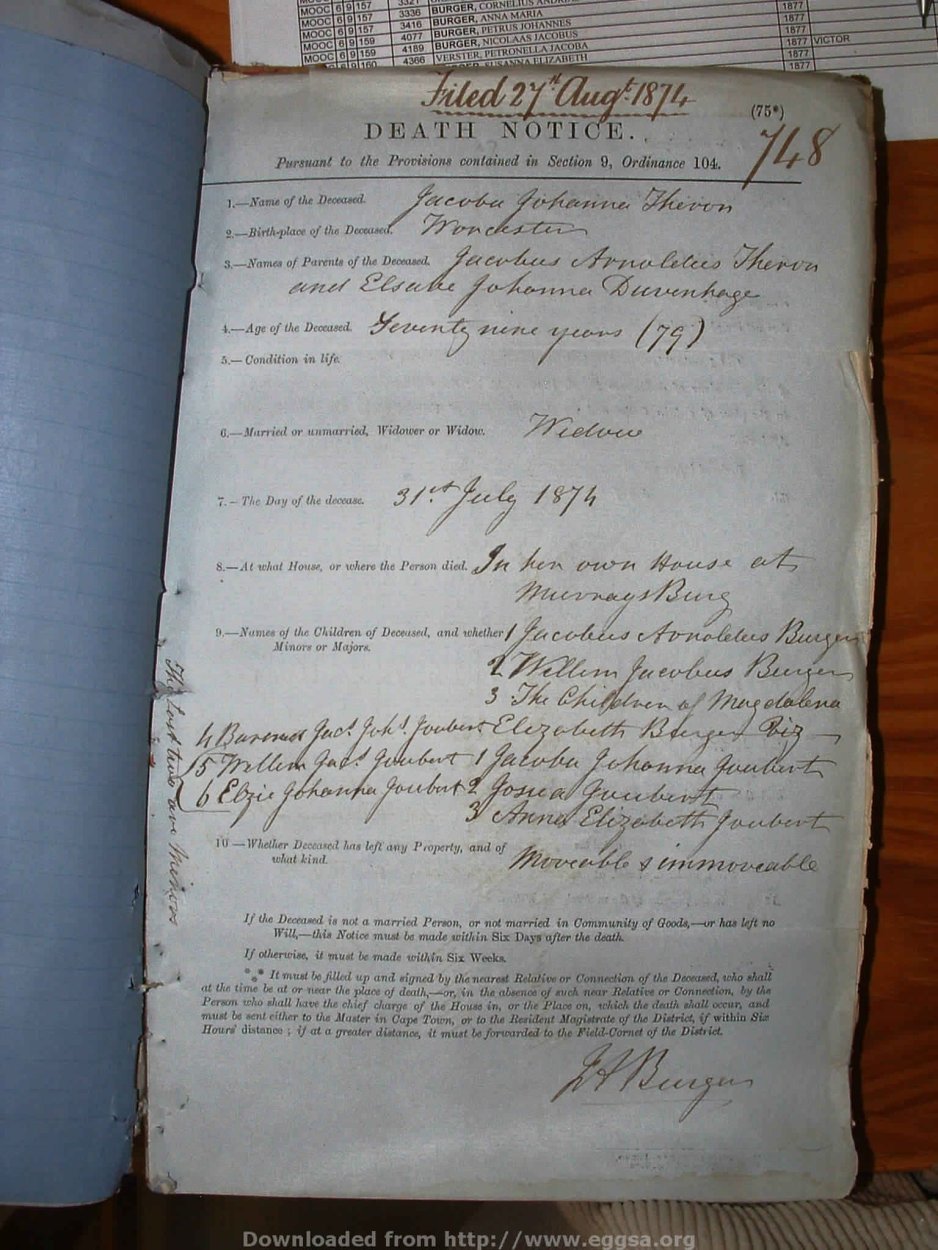 MOOC 6 9 157 3336 BURGER, CORNELIUS 1877
MOOC 6 9 157 3416 BURGER, ANNA MARIA 1877
MOOC 6 9 157 4077 BURGER, PETRUS JOHANNES 1877
MOOC 6 9 159 4189 BURGER, NICOLAAS JACOBUS 1877 VICTOR
MOOC 6 9 159 4366 VERSTER, PETRONELLA JACOBA 1877
SUSANNA ELIZABETH 1877
Filed 27th Augt. 1874
(75*)
DEATH NOTICE.
748
Pursuant to the Provisions contained in Section 9, Ordinance 104.
1.—Name of the Deceased. Jacoba Johanna Theron
2.—Birth-place of the Deceased. Worcester
3.—Names of Parents of the Deceased. Jacobus Arnoldus Theron
and Elsabe Johanna Duvenhage
4.—Age of the Deceased. Seventy nine years (79)
5.—Condition in life.
6.—Married or unmarried, Widower or Widow. Widow
7.—The Day of the decease. 31st July 1874
8.—At what House, or where the Person died. In her own House at
MurraysBurg
9.—Names of the Children of Deceased, and whether 1 Jacobus Arnoldus Burger
Minors or Majors.
2 Willem Jacobus Burger
3 The Children of Magdalena
Elizabeth Burger Viz
4 Jacs. Johs. Joubert
1 Jacoba Johanna Joubert
5 Willem Jacs. Joubert
2 Josua Joubert
6 Elzie Johanna Joubert
3 Anna Elizabeth Joubert
The Last two are Minors
10—Whether Deceased has left any Property, and of
what kind. Moveable & immoveable
If the Deceased is not a married Person, or not married in Community of Goods,—or has left no
Will,—this Notice must be made within Six Days after the death.
If otherwise, it must be made within Six Weeks.
*** It must be filled up and signed by the nearest Relative or Connection of the Deceased, who shall
at the time be at or near the place of death,—or, in the absence of such near Relative or Connection, by the
Person who shall have the chief charge of the House in, or the Place on, which the death shall occur, and
must be sent either to the Master in Cape Town, or to the Resident Magistrate of the District, if within Six
Hours' distance; if at a greater distance, it must be forwarded to the Field-Cornet of the District.
JA Burger
Downloaded from http://www.eggsa.org